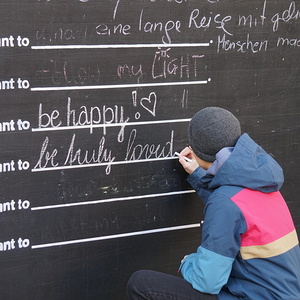 eine lange Reise mit
ant to Menschen
ant to my LIGHT
ant to be happy!
ant to be truly loved
ant to
ant to